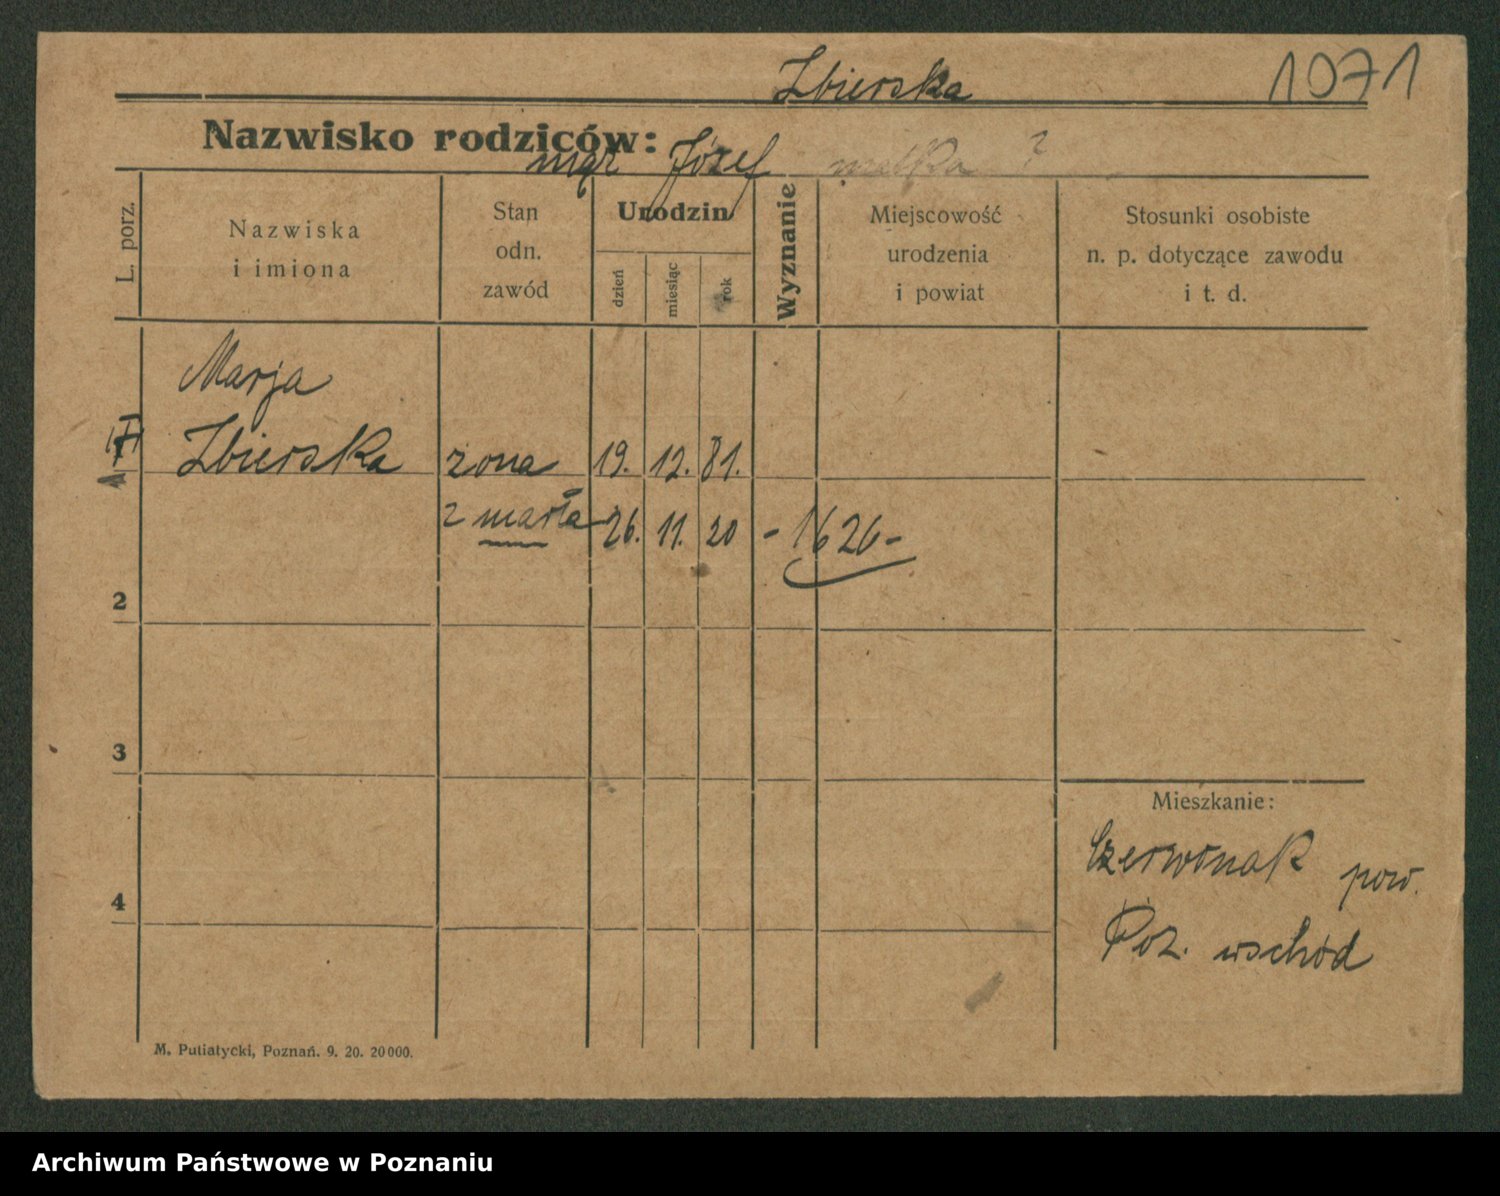 Zbierska
1071
Nazwisko rodziców:
mąż Józef matka ?
L. porz.
Nazwiska
i imiona
Stan
odn.
zawód
Urodzin
dzień
miesiąc
rok
Wyznanie
Miejscowość
urodzenia
i powiat
Stosunki osobiste
n. p. dotyczące zawodu
i t. d.
Marja
Zbierska żona 19. 12. 81.
zmarła 26. 11. 20 - 1626 -
2
3
Mieszkanie:
Czerwonak pow.
4
Poz. wschód
M. Putiatycki, Poznań. 9. 20. 20 000.
Archiwum Państwowe w Poznaniu